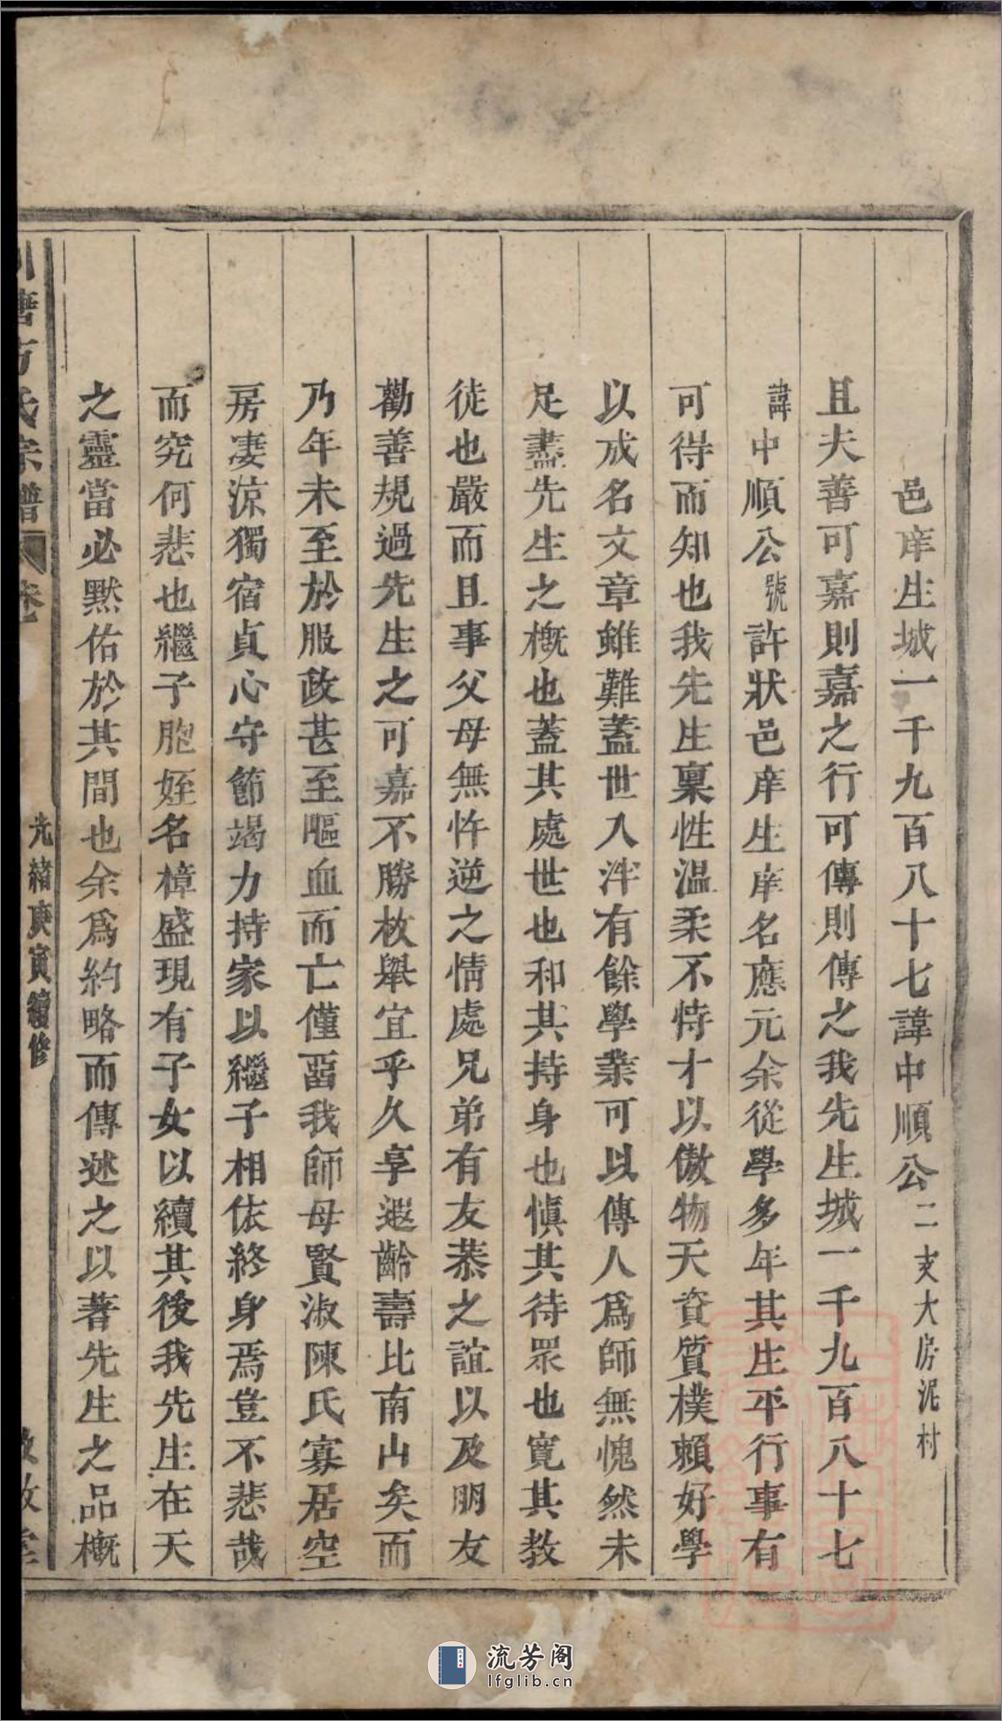 邑庠生城一千九百八十七諱中順公二支大房泥村
且夫善可嘉則嘉之行可傳則傳之我先生城一千九百八十七
諱中順公號許狀邑庠生庠名應元余從學多年其生平行事有
可得而知也我先生稟性溫柔不恃才以傲物天資質樸賴好學
以成名文章雖難蓋世入泮有餘學業可以傳人為師無愧然未
足盡先生之概也蓋其處世也和其持身也慎其待眾也寬其教
徒也嚴而且事父母無忤逆之情處兄弟有友恭之誼以及朋友
勸善規過先生之可嘉不勝枚舉宜乎久享遐齡壽比南山矣而
乃年未至於服政甚至嘔血而亡僅畱我師母賢淑陳氏寡居空
房凄涼獨宿貞心守節竭力持家以繼子相依終身焉豈不悲哉
而究何悲也繼子胞姪名樟盛現有子女以續其後我先生在天
之靈當必默佑於其間也余爲約略而傳述之以著先生之品概
塘方氏宗譜 卷 光緒庚寅續修
流芳阁
lfglib.cn